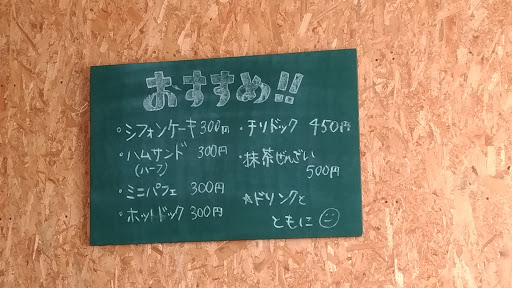 おすすめ!!
・シフォンケーキ 300円
・ハムサンド 300円
(ハーフ)
・ミニパフェ 300円
・ホットドック 300円
・チリドック 450円
・抹茶ぜんざい
500円
☆ドリンクと
ともに☺